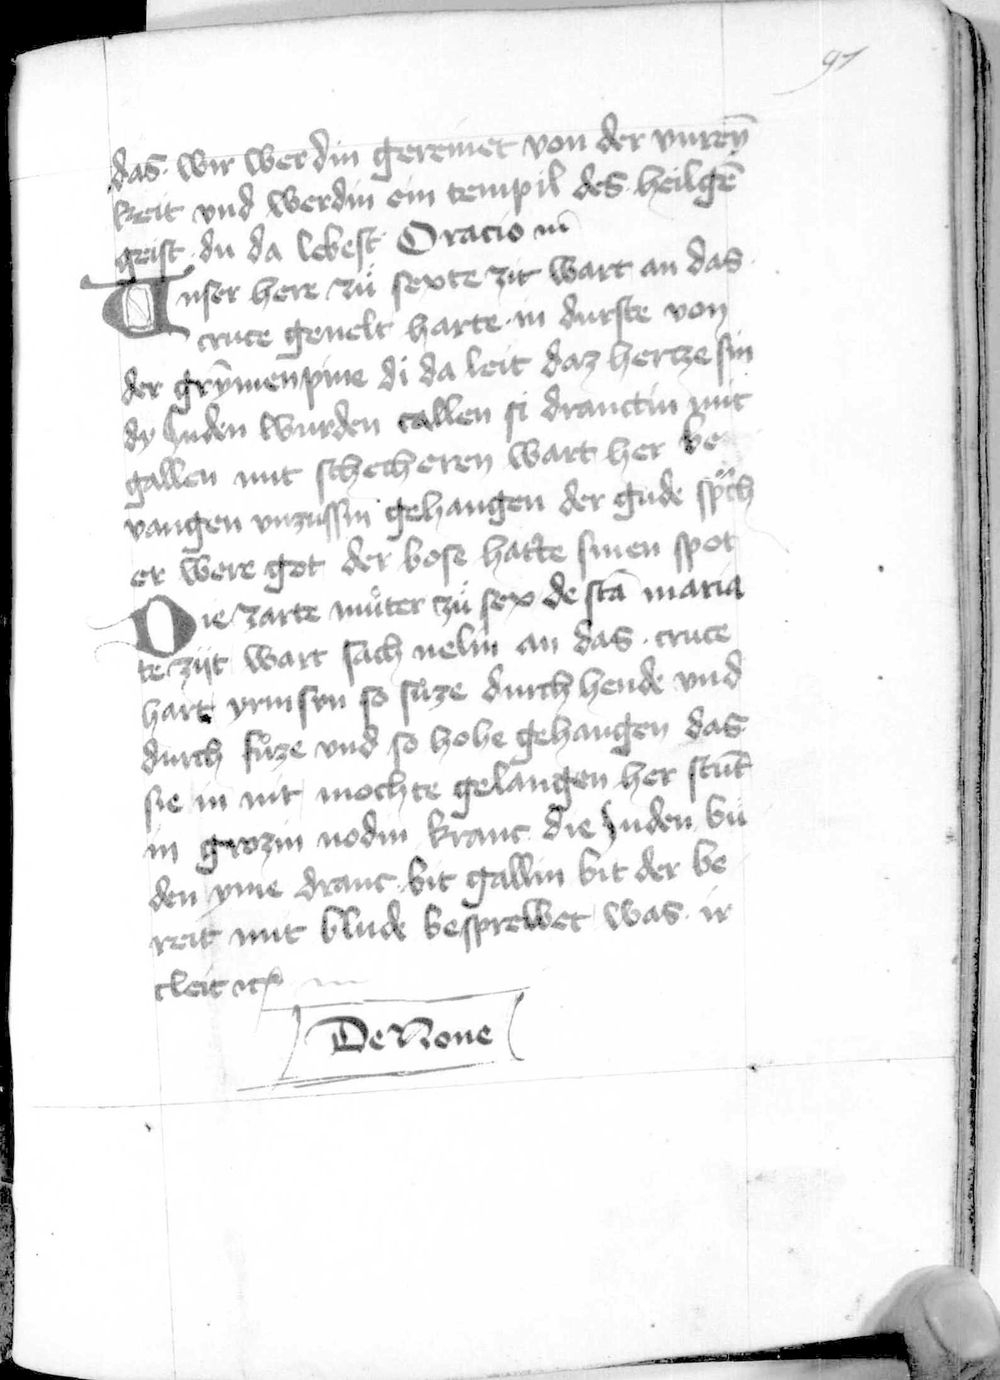 97
das wir werdin gereinet von der vnreȳ
keit vnd werdin ein tempil des heilgē
geist du da lebest Oracio
Unser here zů sexte zit wart an das
cruce genelt harte in durste von
der grȳmen pine di da leit daz hertze sin
dy Juden wurden callen si dranctin mit
gallen mit schecheren wart her be
vangen vnzussin gehangen der gude sp̈ch
er were got der bose hatte sinen spot
Die zarte můter zů sex de sc̄a maria
te zijt wart sach nelin an das cruce
hart yrin sen so sůze durch hende vnd
durch fůze vnd so hohe gehangen das
sie in nit mochte gelangen her stūt
in grozin nodin kranc die Juden bu
den yme dranc bit gallin bit der be
reit mit blude besprewet was ir
cleit
De None